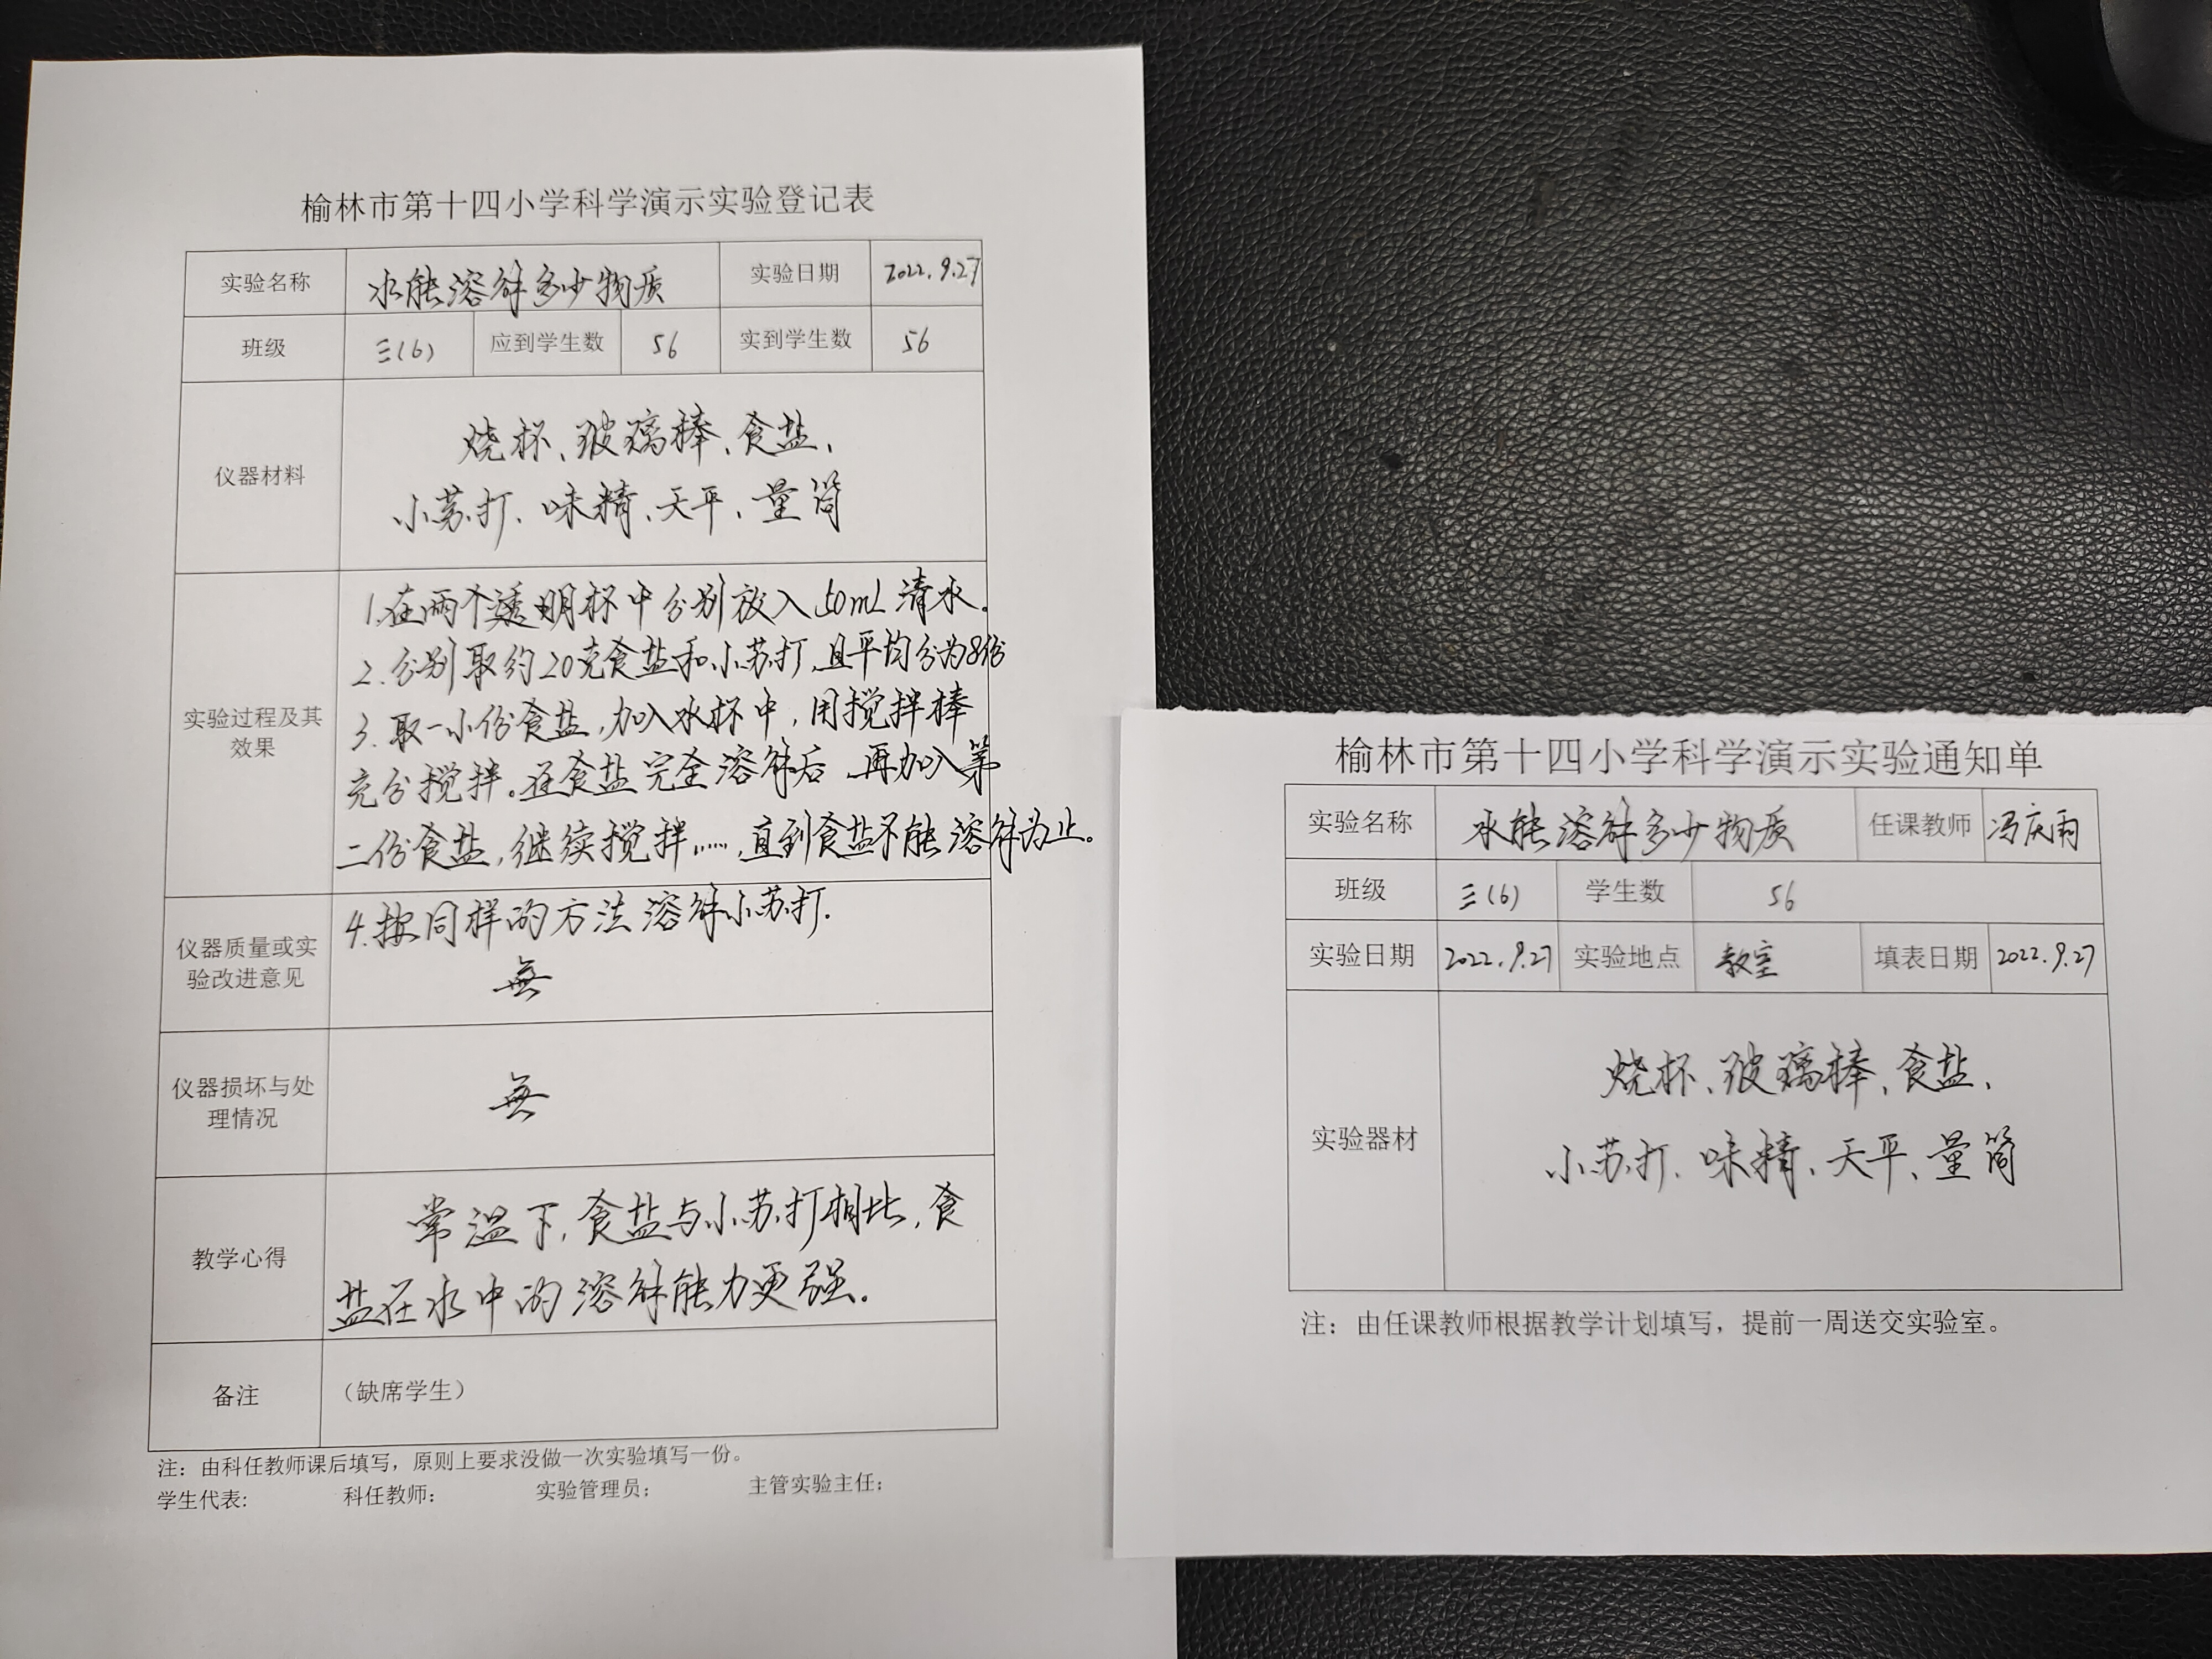 榆林市第十四小学科学演示实验登记表
实验名称 水能溶解多少物质 实验日期 2022.9.27
班级 三(6) 应到学生数 56 实到学生数 56
仪器材料
烧杯、玻璃棒、食盐、
小苏打、味精、天平、量筒
实验过程及其
效果
1.在两个透明杯中分别放入50mL清水。
2.分别取约20克食盐和小苏打,且平均分为8份
3.取一小份食盐,加入水杯中,用搅拌棒
充分搅拌。还食盐完全溶解后,再加入第
二份食盐,继续搅拌……,直到食盐不能溶解为止。
4.按同样的方法溶解小苏打.
仪器质量或实
验改进意见
無
仪器损坏与处
理情况
無
教学心得
常温下,食盐与小苏打相比,食
盐在水中的溶解能力更强.
备注 (缺席学生)
注：由科任教师课后填写，原则上要求没做一次实验填写一份。
学生代表: 科任教师: 实验管理员: 主管实验主任:
榆林市第十四小学科学演示实验通知单
实验名称 水能溶解多少物质 任课教师 冯庆雨
班级 三(6) 学生数 56
实验日期 2022.9.27 实验地点 教室 填表日期 2022.9.27
实验器材
烧杯、玻璃棒、食盐、
小苏打、味精、天平、量筒
注：由任课教师根据教学计划填写，提前一周送交实验室。